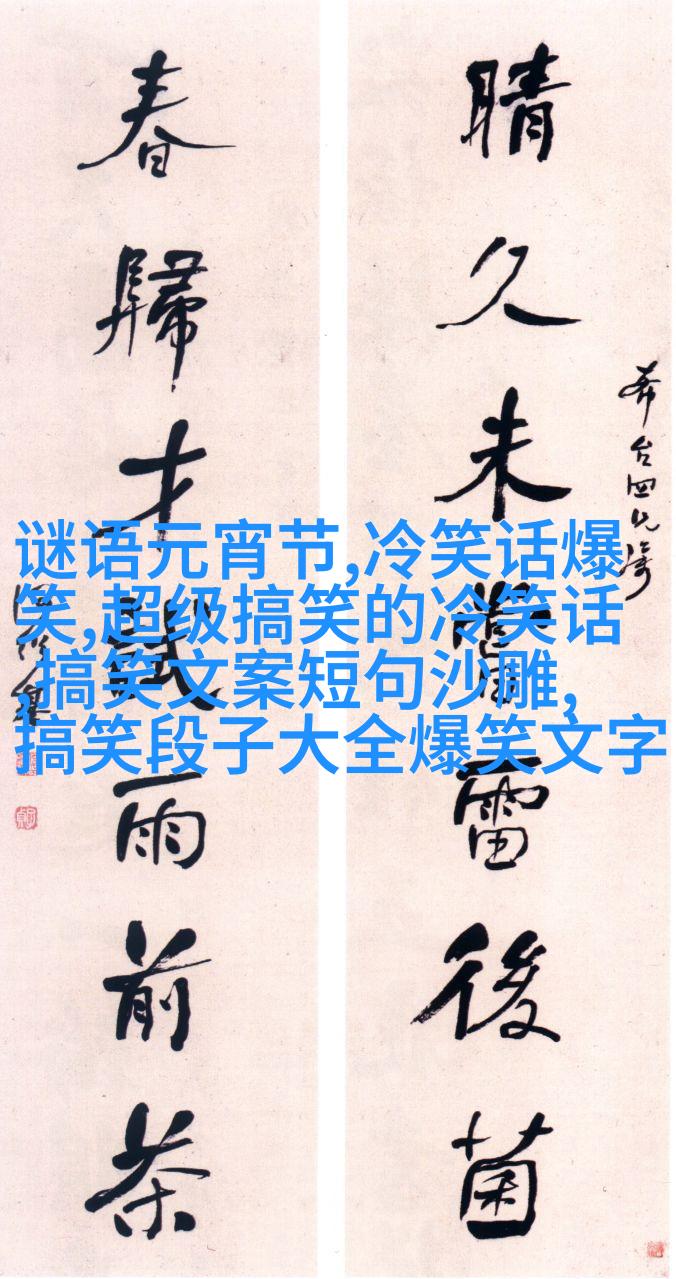 晴久未雷後菌
春歸才雨前茶
谜语元宵节,冷笑话爆
笑,超级搞笑的冷笑话
,搞笑文案短句沙雕,
搞笑段子大全爆笑文字